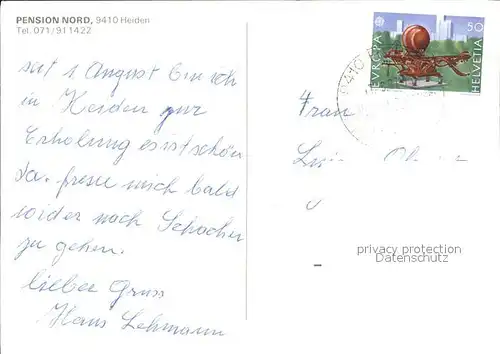 PENSION NORD, 9410 Heiden
Tel. 071/911422
EUROPA
50
HELVETIA
9410
seit 1 August bin ich
in Heiden zur
Erholung es ist schön
da. freue mich bald
wider nach
zu gehen.
lieber Gruss
Hans Lehmann
Frau
privacy protection
Datenschutz